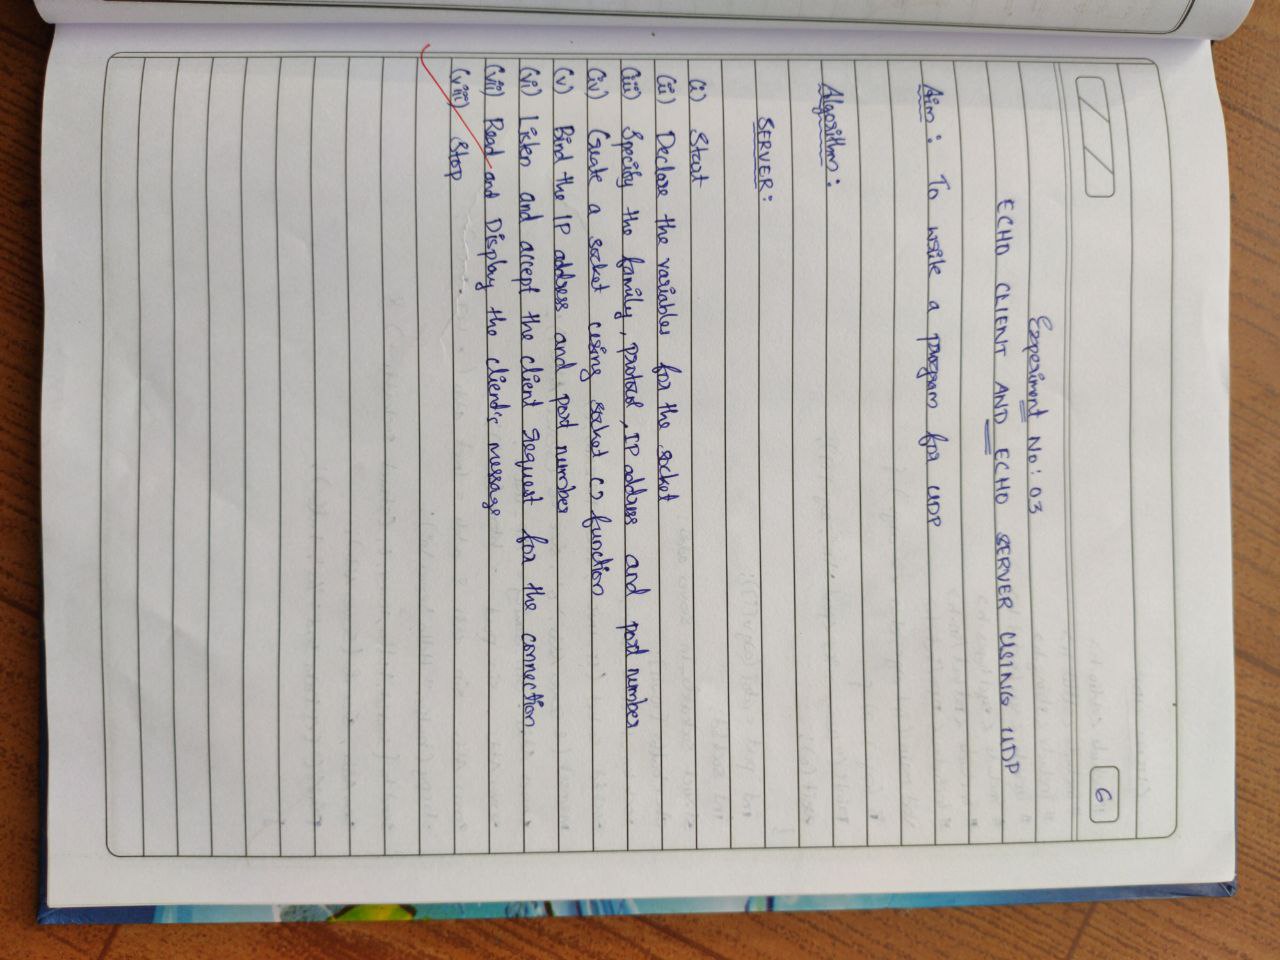 6
Experiment No: 03
ECHO CLIENT AND ECHO SERVER USING UDP
Aim: To write a program for UDP
Algorithm:
SERVER:
(i) Start
(ii) Declare the variables for the socket
(iii) Specify the family, protocol, IP address and port number
(iv) Create a socket using socket () function
(v) Bind the IP address and port number
(vi) Listen and accept the client request for the connection.
(vii) Read and Display the client's message
(viii) Stop